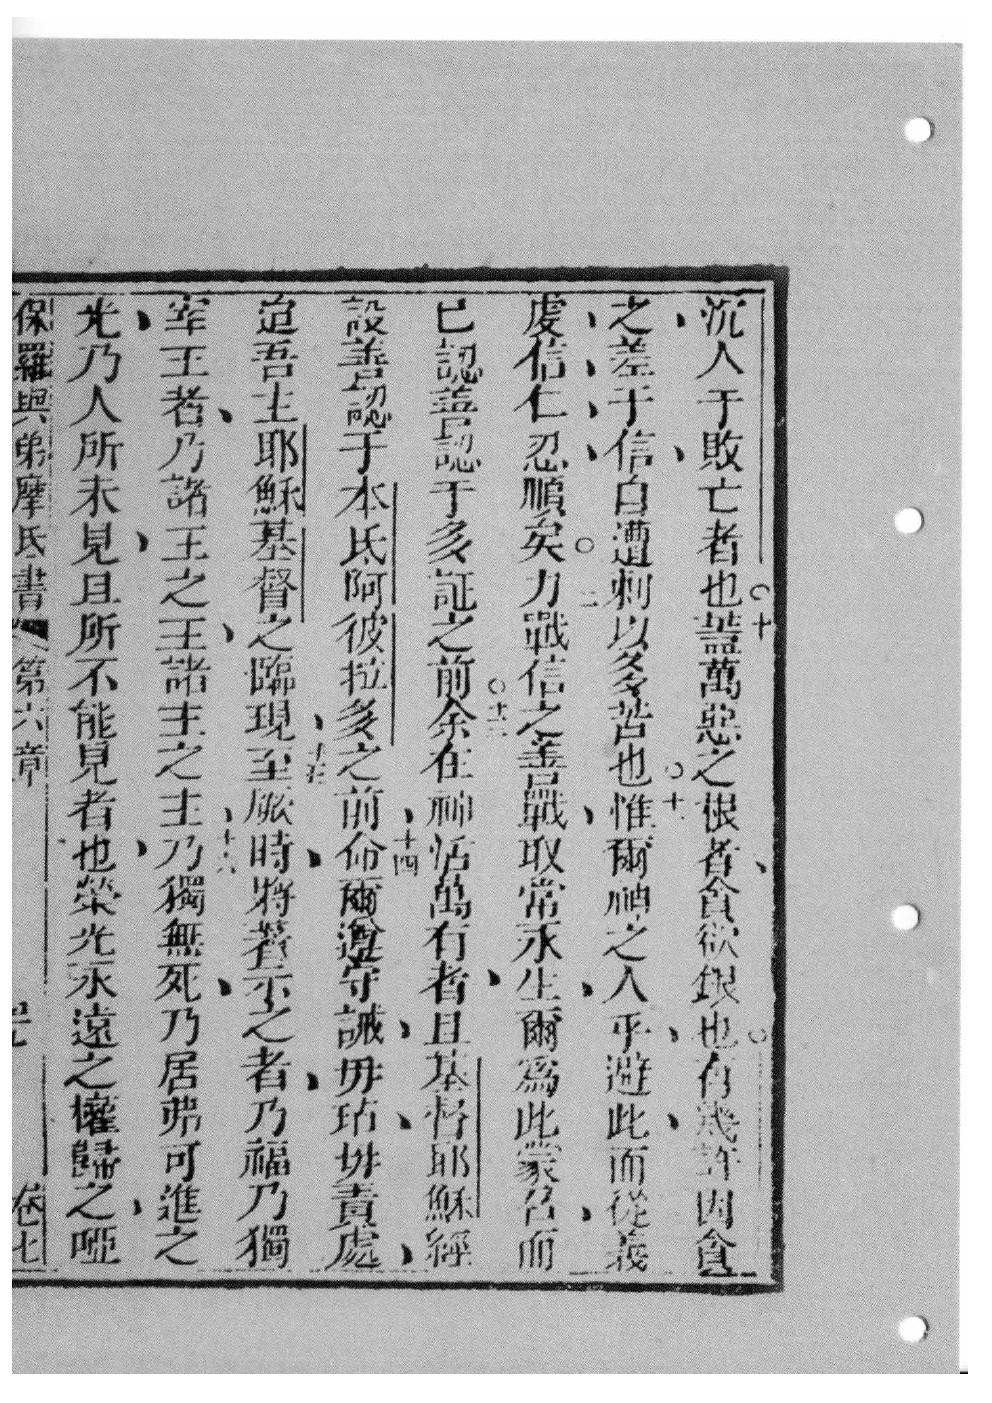 沉人于敗亡者也○十葢萬惡之根者貪欲銀也○有幾許因貪
之差于信自遭刺以多苦也○十一惟爾神之人乎避此而從義
虔信仁忍順矣○十二力戰信之善戰取常永生爾爲此蒙召而
已認善認于多証之前○十三余在神活萬有者且基督耶穌經
設善認于本氐阿彼拉多之前十四命爾遵守誡毋玷毋責處
迨吾主耶穌基督之臨現十五至厥時將著示之者乃福乃獨
宰王者乃諸王之王諸主之主十六乃獨無死乃居弗可進之
光乃人所未見且所不能見者也榮光永遠之權歸之啞
保羅與弟摩氏書 第六章 卷七